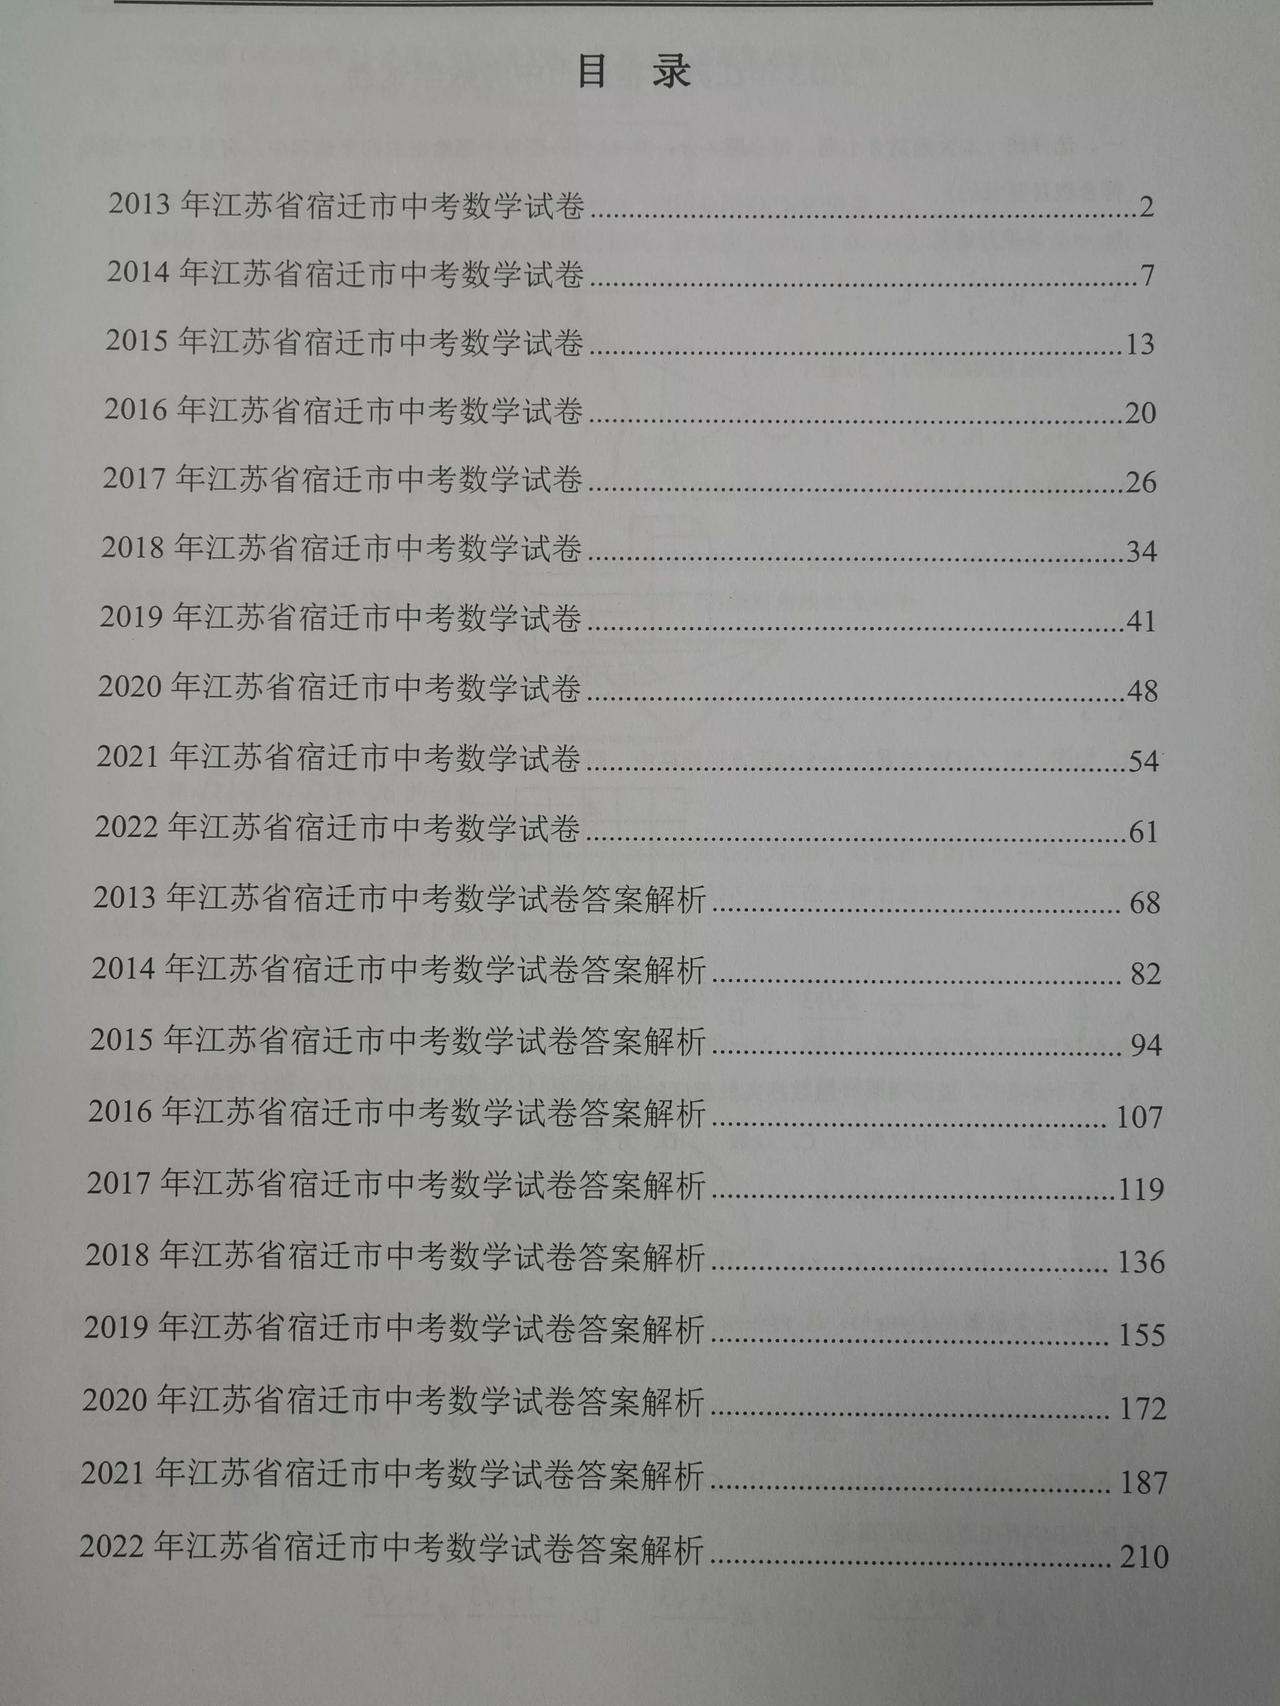 目 录
2013 年江苏省宿迁市中考数学试卷......................................................................2
2014 年江苏省宿迁市中考数学试卷......................................................................7
2015 年江苏省宿迁市中考数学试卷....................................................................13
2016 年江苏省宿迁市中考数学试卷....................................................................20
2017 年江苏省宿迁市中考数学试卷....................................................................26
2018 年江苏省宿迁市中考数学试卷....................................................................34
2019 年江苏省宿迁市中考数学试卷....................................................................41
2020 年江苏省宿迁市中考数学试卷....................................................................48
2021 年江苏省宿迁市中考数学试卷....................................................................54
2022 年江苏省宿迁市中考数学试卷....................................................................61
2013 年江苏省宿迁市中考数学试卷答案解析.................................................... 68
2014 年江苏省宿迁市中考数学试卷答案解析.................................................... 82
2015 年江苏省宿迁市中考数学试卷答案解析.................................................... 94
2016 年江苏省宿迁市中考数学试卷答案解析.................................................. 107
2017 年江苏省宿迁市中考数学试卷答案解析...................................................119
2018 年江苏省宿迁市中考数学试卷答案解析.................................................. 136
2019 年江苏省宿迁市中考数学试卷答案解析.................................................. 155
2020 年江苏省宿迁市中考数学试卷答案解析.................................................. 172
2021 年江苏省宿迁市中考数学试卷答案解析.................................................. 187
2022 年江苏省宿迁市中考数学试卷答案解析.................................................. 210